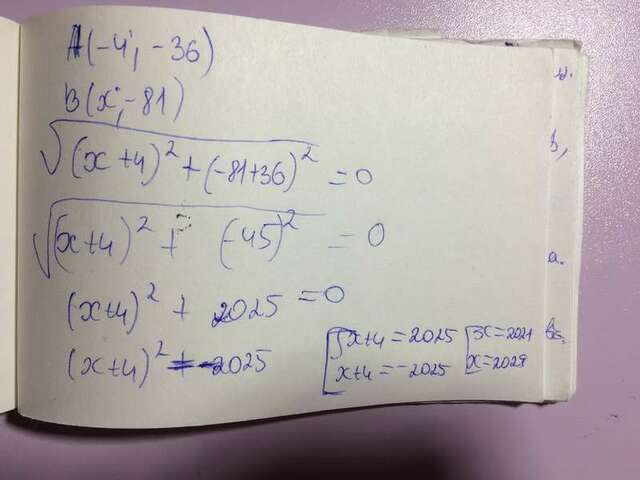 A(-4; -36)
B(x; -81)
√(x+4)² + (-81+36)² = 0
√(x+4)² + (-45)² = 0
(x+4)² + 2025 = 0
(x+4)² = -2025
[x+4 = 2025
x+4 = -2025
[x = 2021
x = 2029